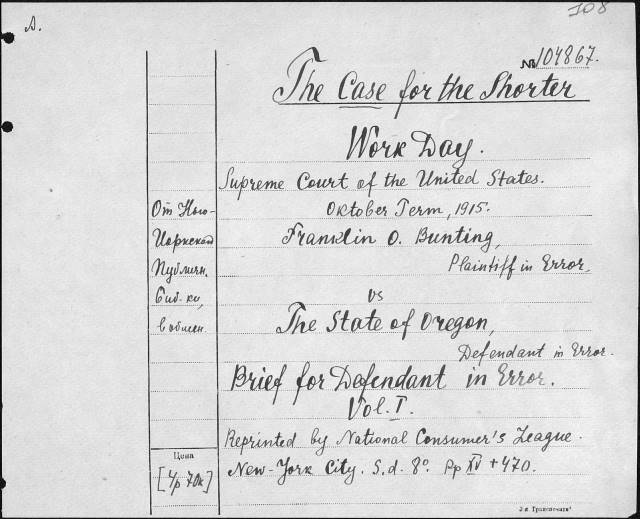 108
A.
№104867.
The Case for the Shorter
Work Day.
Supreme Court of the United States.
Oktober Term, 1915.
Franklin O. Bunting,
Plaintiff in Error,
vs
The State of Oregon,
Defendant in Error.
Brief for Defendant in Error.
Vol. I.
Reprinted by National Consumer's League.
New-York City. S.d. 8°. pp XV + 470.
От Нью-
Иоркской
Публичн.
Биб-ки,
в обмен.
Цена
[4р 70к]